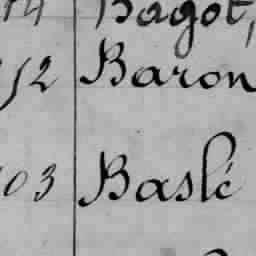 14 Bagot,
52 Baron
03 Baslé